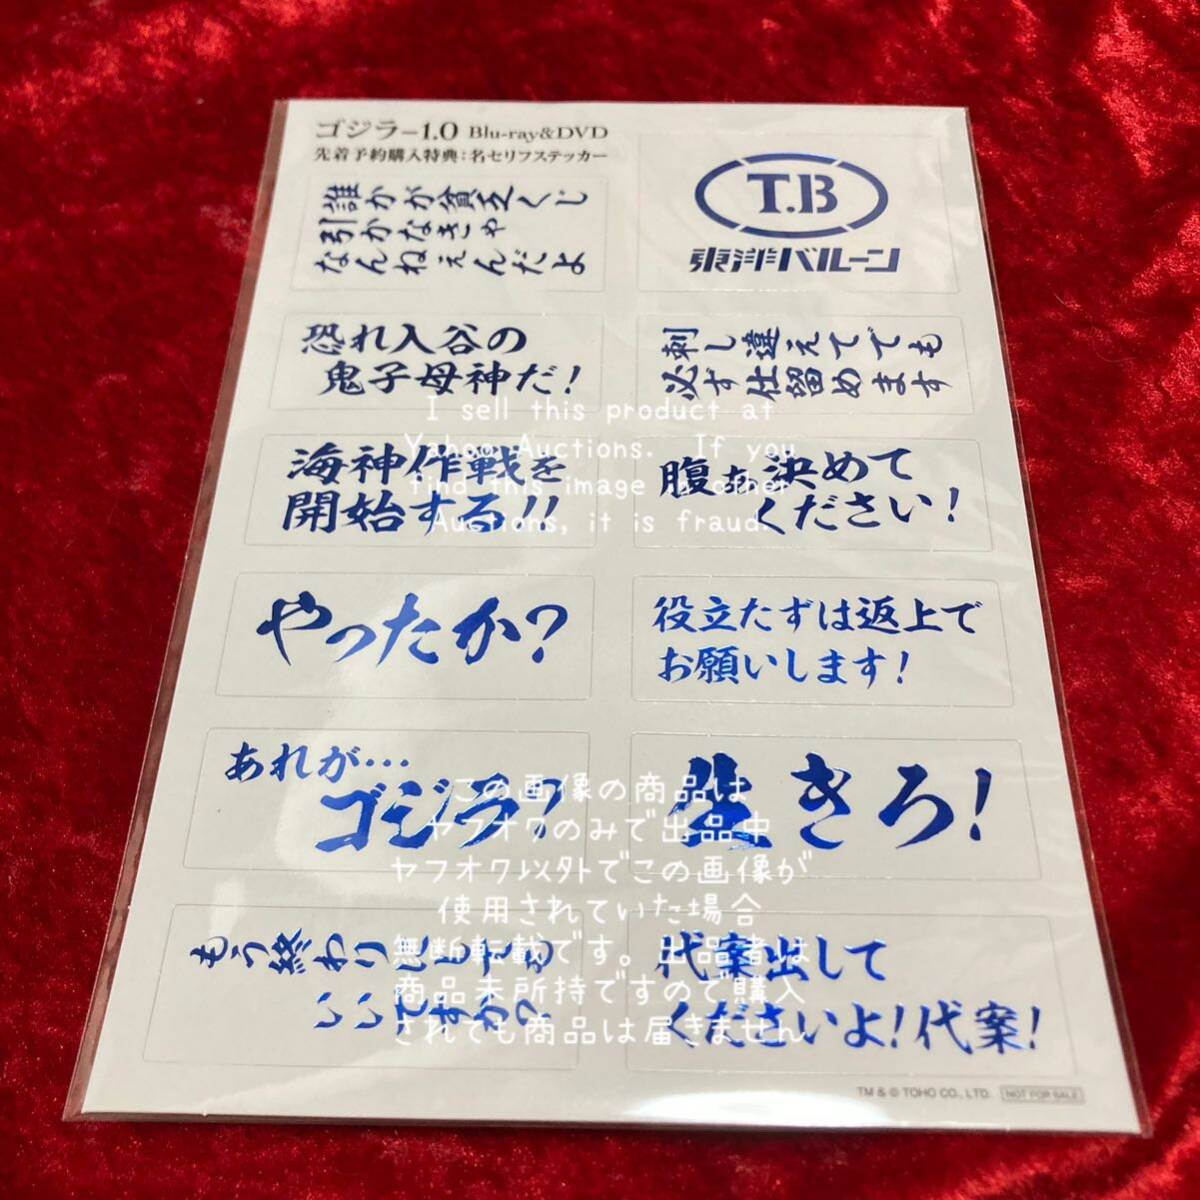 ゴジラ-1.0 Blu-ray&DVD
先着予約購入特典:名セリフステッカー
誰かが貧乏くじ
引かなきゃ
なんねぇんだよ
T.B
東洋バルーン
恐れ入谷の
鬼子母神だ!
刺し違えてでも
必ず仕留めます
海神作戦を
開始する!!
腹ぁ決めて
ください!
やったか?
役立たずは返上で
お願いします!
あれが…
ゴジラ?
生きろ!
もう終わりにしても
いいですか?
代案出して
くださいよ!代案!
TM & © TOHO CO., LTD. NOT FOR SALE
I sell this product at
Yahoo Auctions. If you
find this image in other
Auctions, it is fraud.
この画像の商品は
ヤフオクのみで出品中
ヤフオク以外でこの画像が
使用されていた場合
無断転載です。出品者は
商品未所持ですので購入
されても商品は届きません